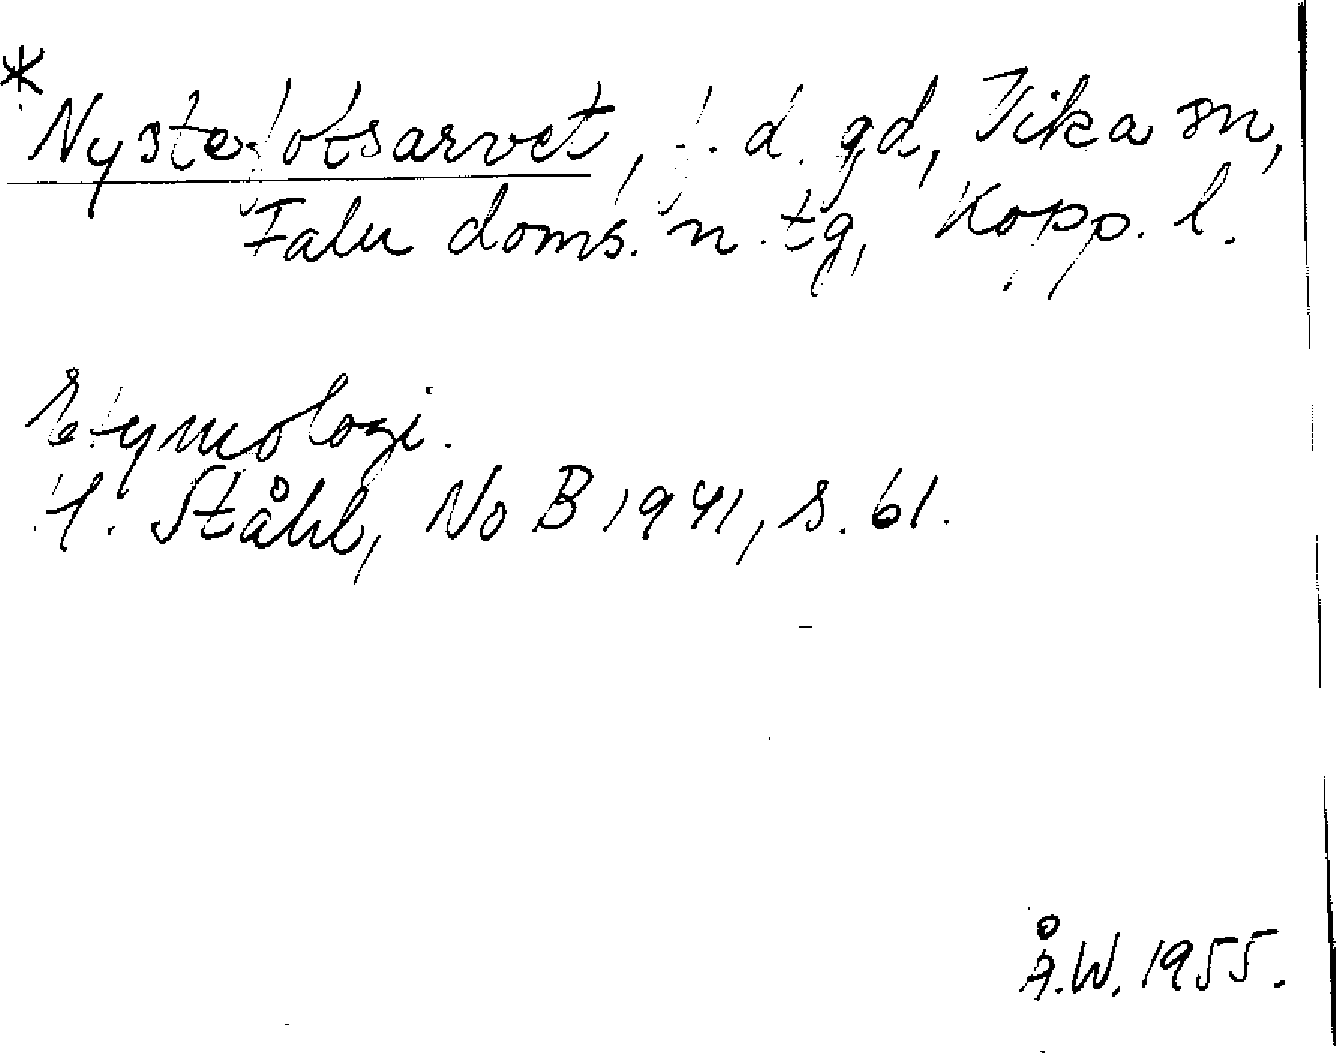 * Nystefotsarvet, f. d. gd, Vika sn,
Falu doms. n. tg, Kopp. l.
Etymologi.
H. Ståhl, No B 1941, s. 61.
Å.W. 1955.